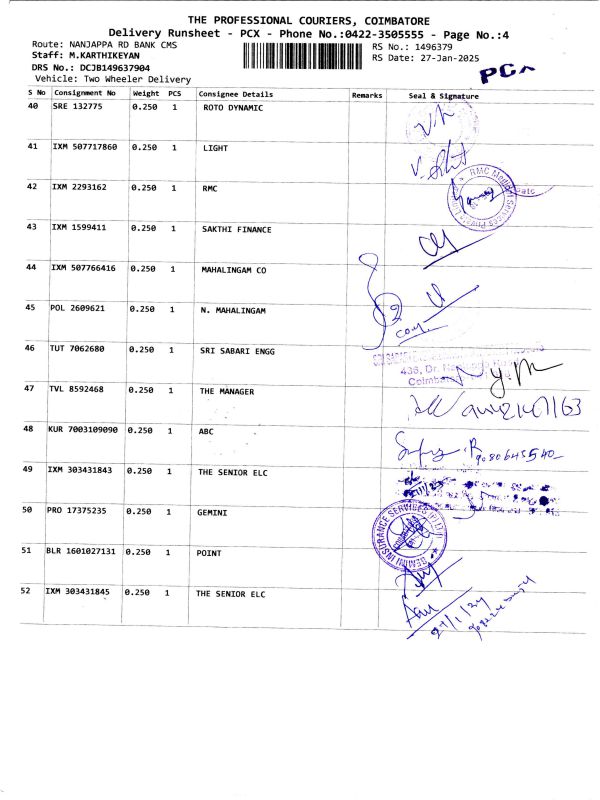 THE PROFESSIONAL COURIERS, COIMBATORE
Delivery Runsheet - PCX - Phone No.:0422-3505555 - Page No.:4
Route: NANJAPPA RD BANK CMS
RS No.: 1496379
Staff: M.KARTHIKEYAN
RS Date: 27-Jan-2025
DRS No.: DCJB149637904
PCX
Vehicle: Two Wheeler Delivery
S No Consignment No Weight PCS Consignee Details Remarks Seal & Signature
40 SRE 132775 0.250 1 ROTO DYNAMIC
41 IXM 507717860 0.250 1 LIGHT
42 IXM 2293162 0.250 1 RMC
RMC Medical Services Private
43 IXM 1599411 0.250 1 SAKTHI FINANCE
44 IXM 507766416 0.250 1 MAHALINGAM CO
45 POL 2609621 0.250 1 N. MAHALINGAM
46 TUT 7062680 0.250 1 SRI SABARI ENGG
436, Dr.
47 TVL 8592468 0.250 1 THE MANAGER
48 KUR 7003109090 0.250 1 ABC
49 IXM 303431843 0.250 1 THE SENIOR ELC
50 PRO 17375235 0.250 1 GEMINI
GEMINI INSURANCE SERVICES (P) LTD
51 BLR 1601027131 0.250 1 POINT
52 IXM 303431845 0.250 1 THE SENIOR ELC
27/1/24